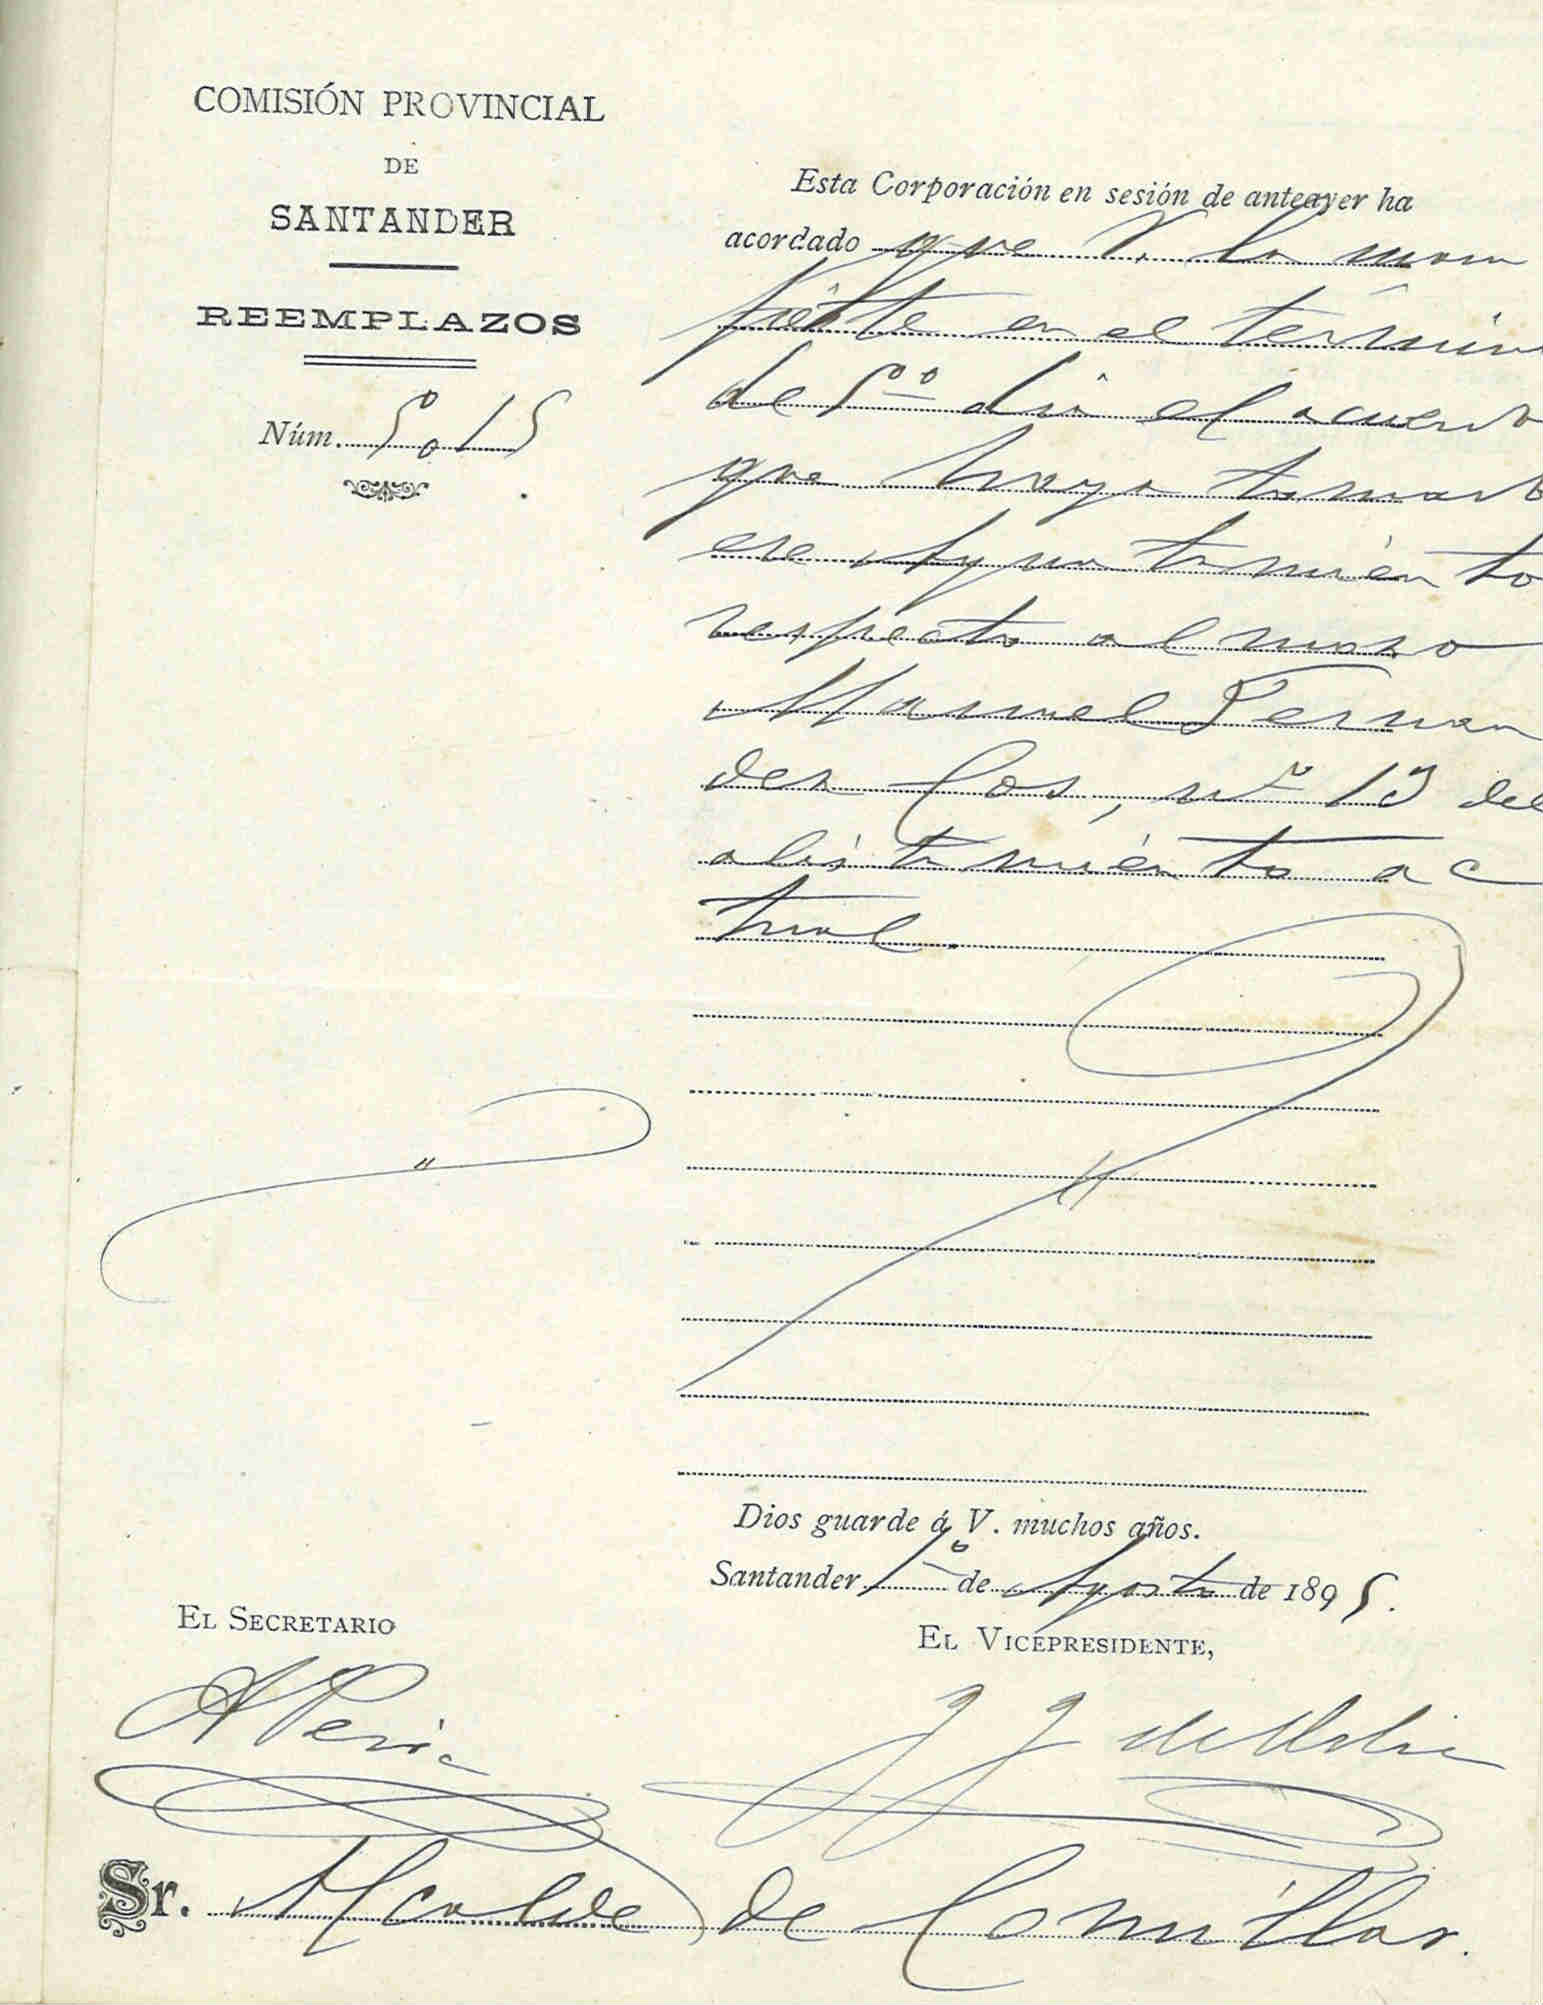 COMISIÓN PROVINCIAL
DE
SANTANDER
REEMPLAZOS
Núm. 5015
Esta Corporación en sesión de anteayer ha
acordado que V. la mani
fieste en el término
de 5º dia el acuerdo
que haya tomado
ese Ayuntamiento
respecto al mozo
Manuel Fernan
dez Cos, nº 13 del
alistamiento ac
tual.
Dios guarde á V. muchos años.
Santander 1º de Agosto de 1895.
EL SECRETARIO
EL VICEPRESIDENTE,
A Peria
J J de
Sr. Alcalde de Comillas.